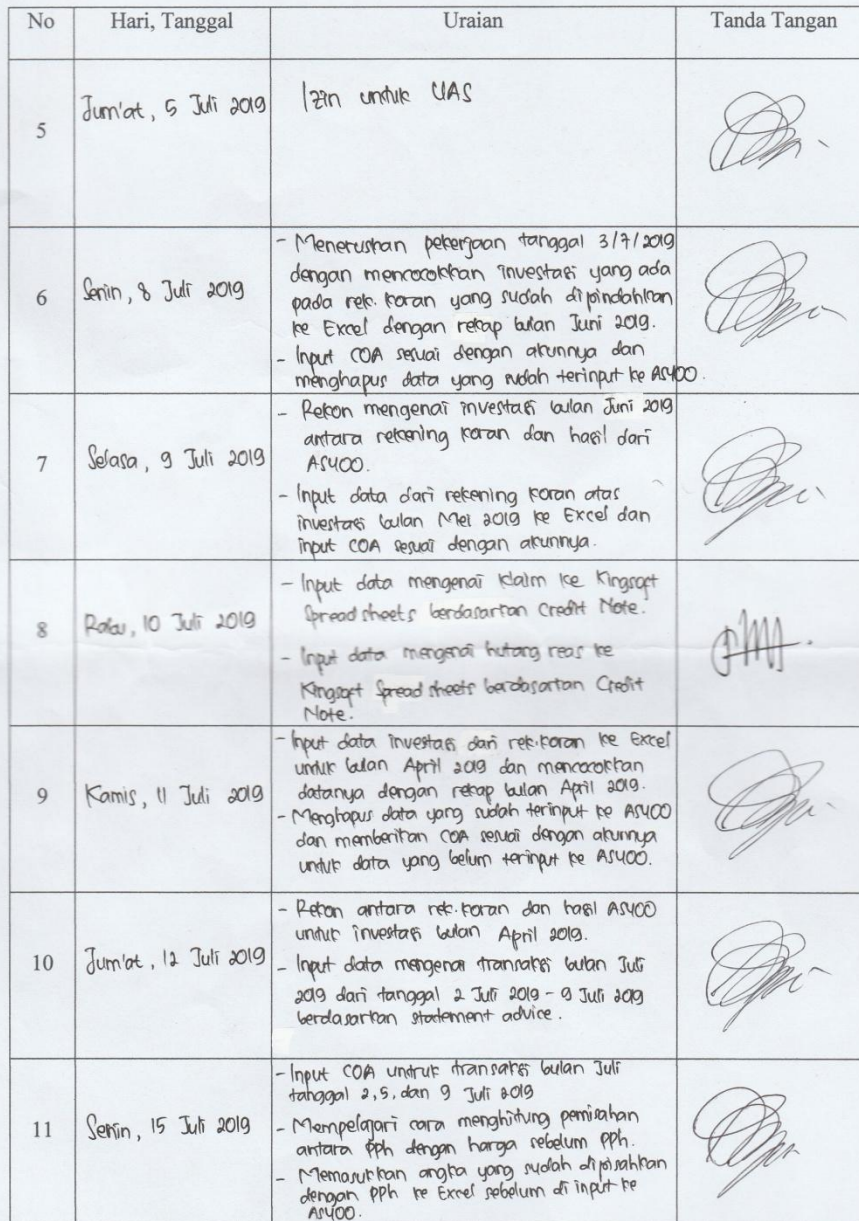 No Hari, Tanggal Uraian Tanda Tangan
5 Jum'at, 5 Juli 2019 Izin untuk UAS
6 Senin, 8 Juli 2019
- Meneruskan pekerjaan tanggal 3/7/2019
dengan mencocokkan investasi yang ada
pada rek. koran yang sudah dipindahkan
ke Excel dengan rekap bulan Juni 2019.
- Input COA sesuai dengan akunnya dan
menghapus data yang sudah terinput ke AS400.
7 Selasa, 9 Juli 2019
- Rekon mengenai investasi bulan Juni 2019
antara rekening koran dan hasil dari
AS400.
- Input data dari rekening koran atas
investasi bulan Mei 2019 ke Excel dan
input COA sesuai dengan akunnya.
8 Rabu, 10 Juli 2019
- Input data mengenai klaim ke Kingsoft
Spreadsheets berdasarkan Credit Note.
- Input data mengenai hutang reas ke
Kingsoft Spreadsheets berdasarkan Credit
Note.
9 Kamis, 11 Juli 2019
- Input data investasi dari rek.koran ke Excel
untuk bulan April 2019 dan mencocokkan
datanya dengan rekap bulan April 2019.
- Menghapus data yang sudah terinput ke AS400
dan memberikan COA sesuai dengan akunnya
untuk data yang belum terinput ke AS400.
10 Jum'at, 12 Juli 2019
- Rekon antara rek.koran dan hasil AS400
untuk investasi bulan April 2019.
- Input data mengenai transaksi bulan Juli
2019 dari tanggal 2 Juli 2019 - 9 Juli 2019
berdasarkan statement advice.
11 Senin, 15 Juli 2019
- Input COA untuk transaksi bulan Juli
tanggal 2, 5, dan 9 Juli 2019
- Mempelajari cara menghitung pemisahan
antara pph dengan harga sebelum pph.
- Memasukkan angka yang sudah dipisahkan
dengan pph ke Excel sebelum di input ke
AS400.